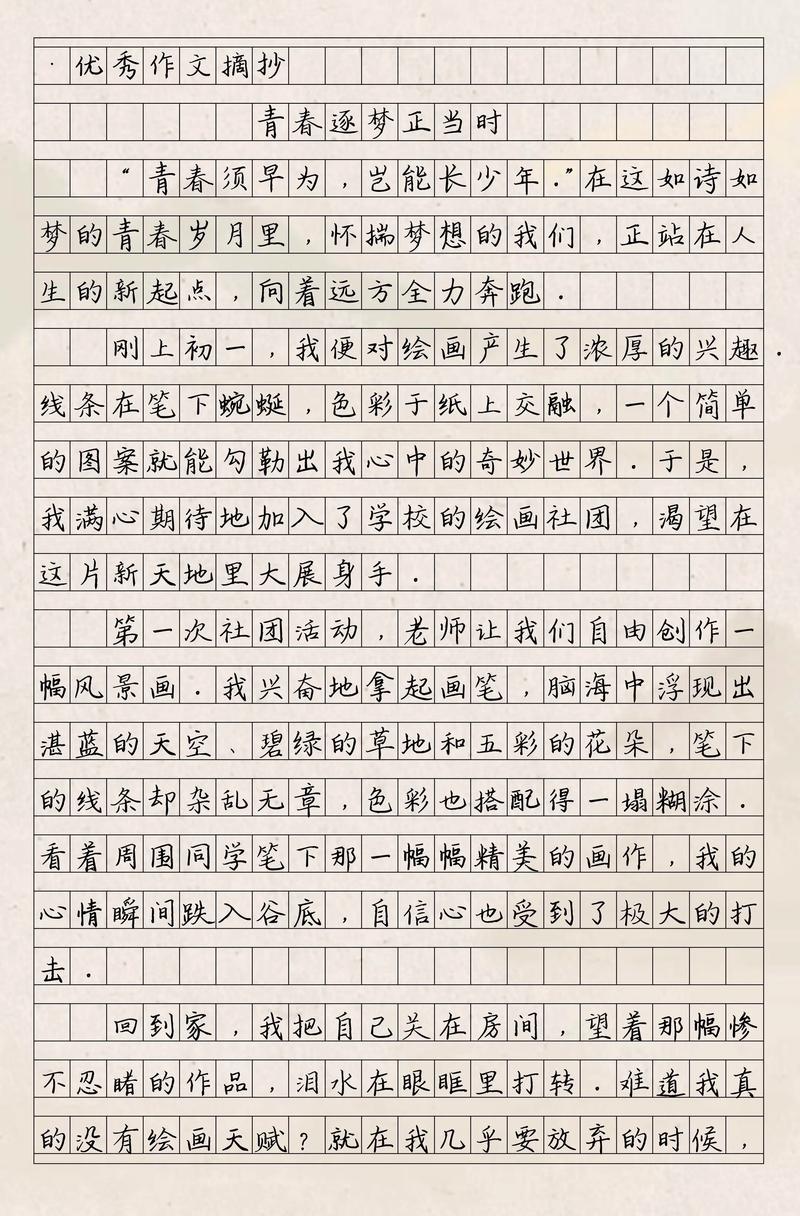 ·优秀作文摘抄
青春逐梦正当时
“青春须早为，岂能长少年.”在这如诗如
梦的青春岁月里，怀揣梦想的我们，正站在人
生的新起点，向着远方全力奔跑.
刚上初一，我便对绘画产生了浓厚的兴趣.
线条在笔下蜿蜒，色彩于纸上交融，一个简单
的图案就能勾勒出我心中的奇妙世界.于是，
我满心期待地加入了学校的绘画社团，渴望在
这片新天地里大展身手.
第一次社团活动，老师让我们自由创作一
幅风景画.我兴奋地拿起画笔，脑海中浮现出
湛蓝的天空、碧绿的草地和五彩的花朵，笔下
的线条却杂乱无章，色彩也搭配得一塌糊涂.
看着周围同学笔下那一幅幅精美的画作，我的
心情瞬间跌入谷底，自信心也受到了极大的打
击.
回到家，我把自己关在房间，望着那幅惨
不忍睹的作品，泪水在眼眶里打转.难道我真
的没有绘画天赋？就在我几乎要放弃的时候，